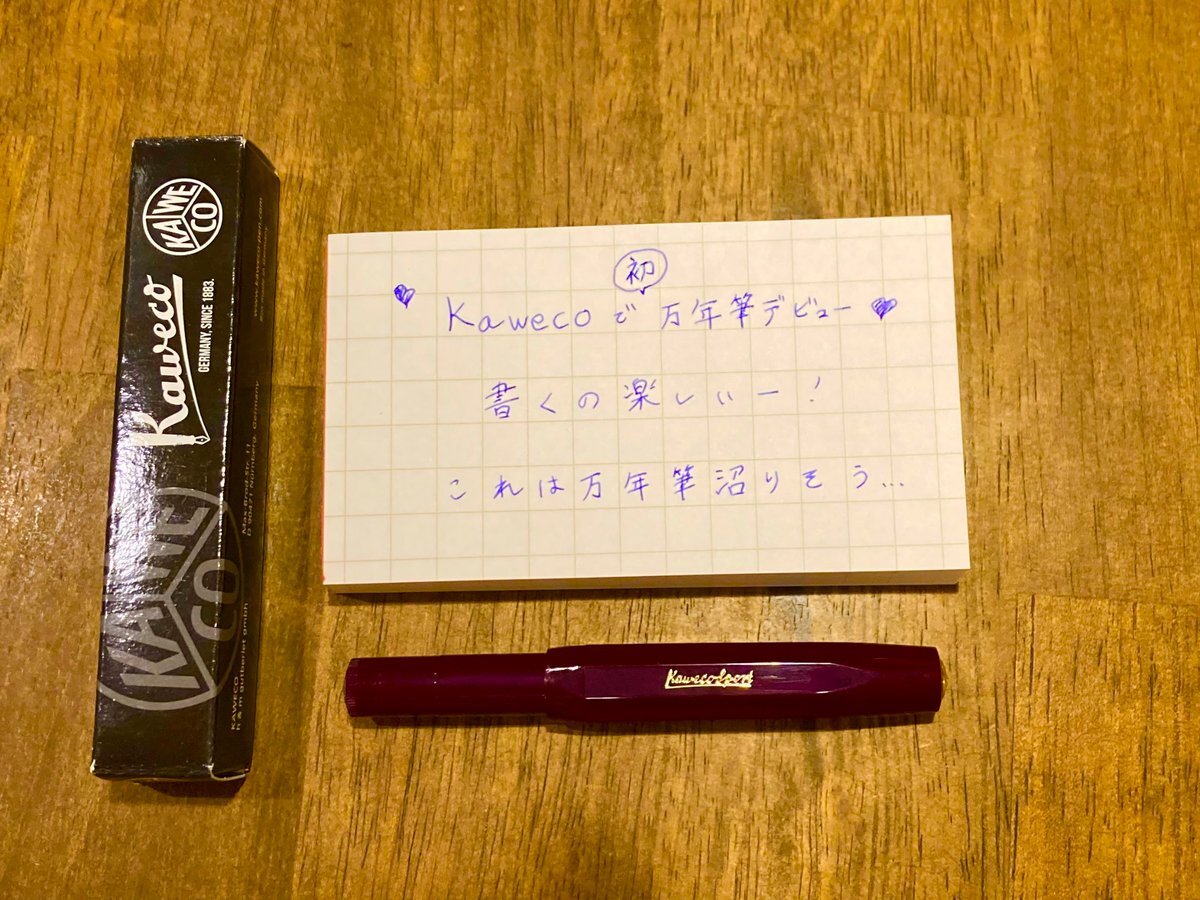 KAWECO
Kaweco
GERMANY, SINCE 1883.
KAWECO
www.kaweco-pen.com
Max-Brod-Str. 11
D 90471 Nürnberg, Germany
KAWECO
h & m gutberlet gmbh
初
♥ Kawecoで万年筆デビュー♥
書くの楽しぃー!
これは万年筆沼りそう…
Kaweco Sport